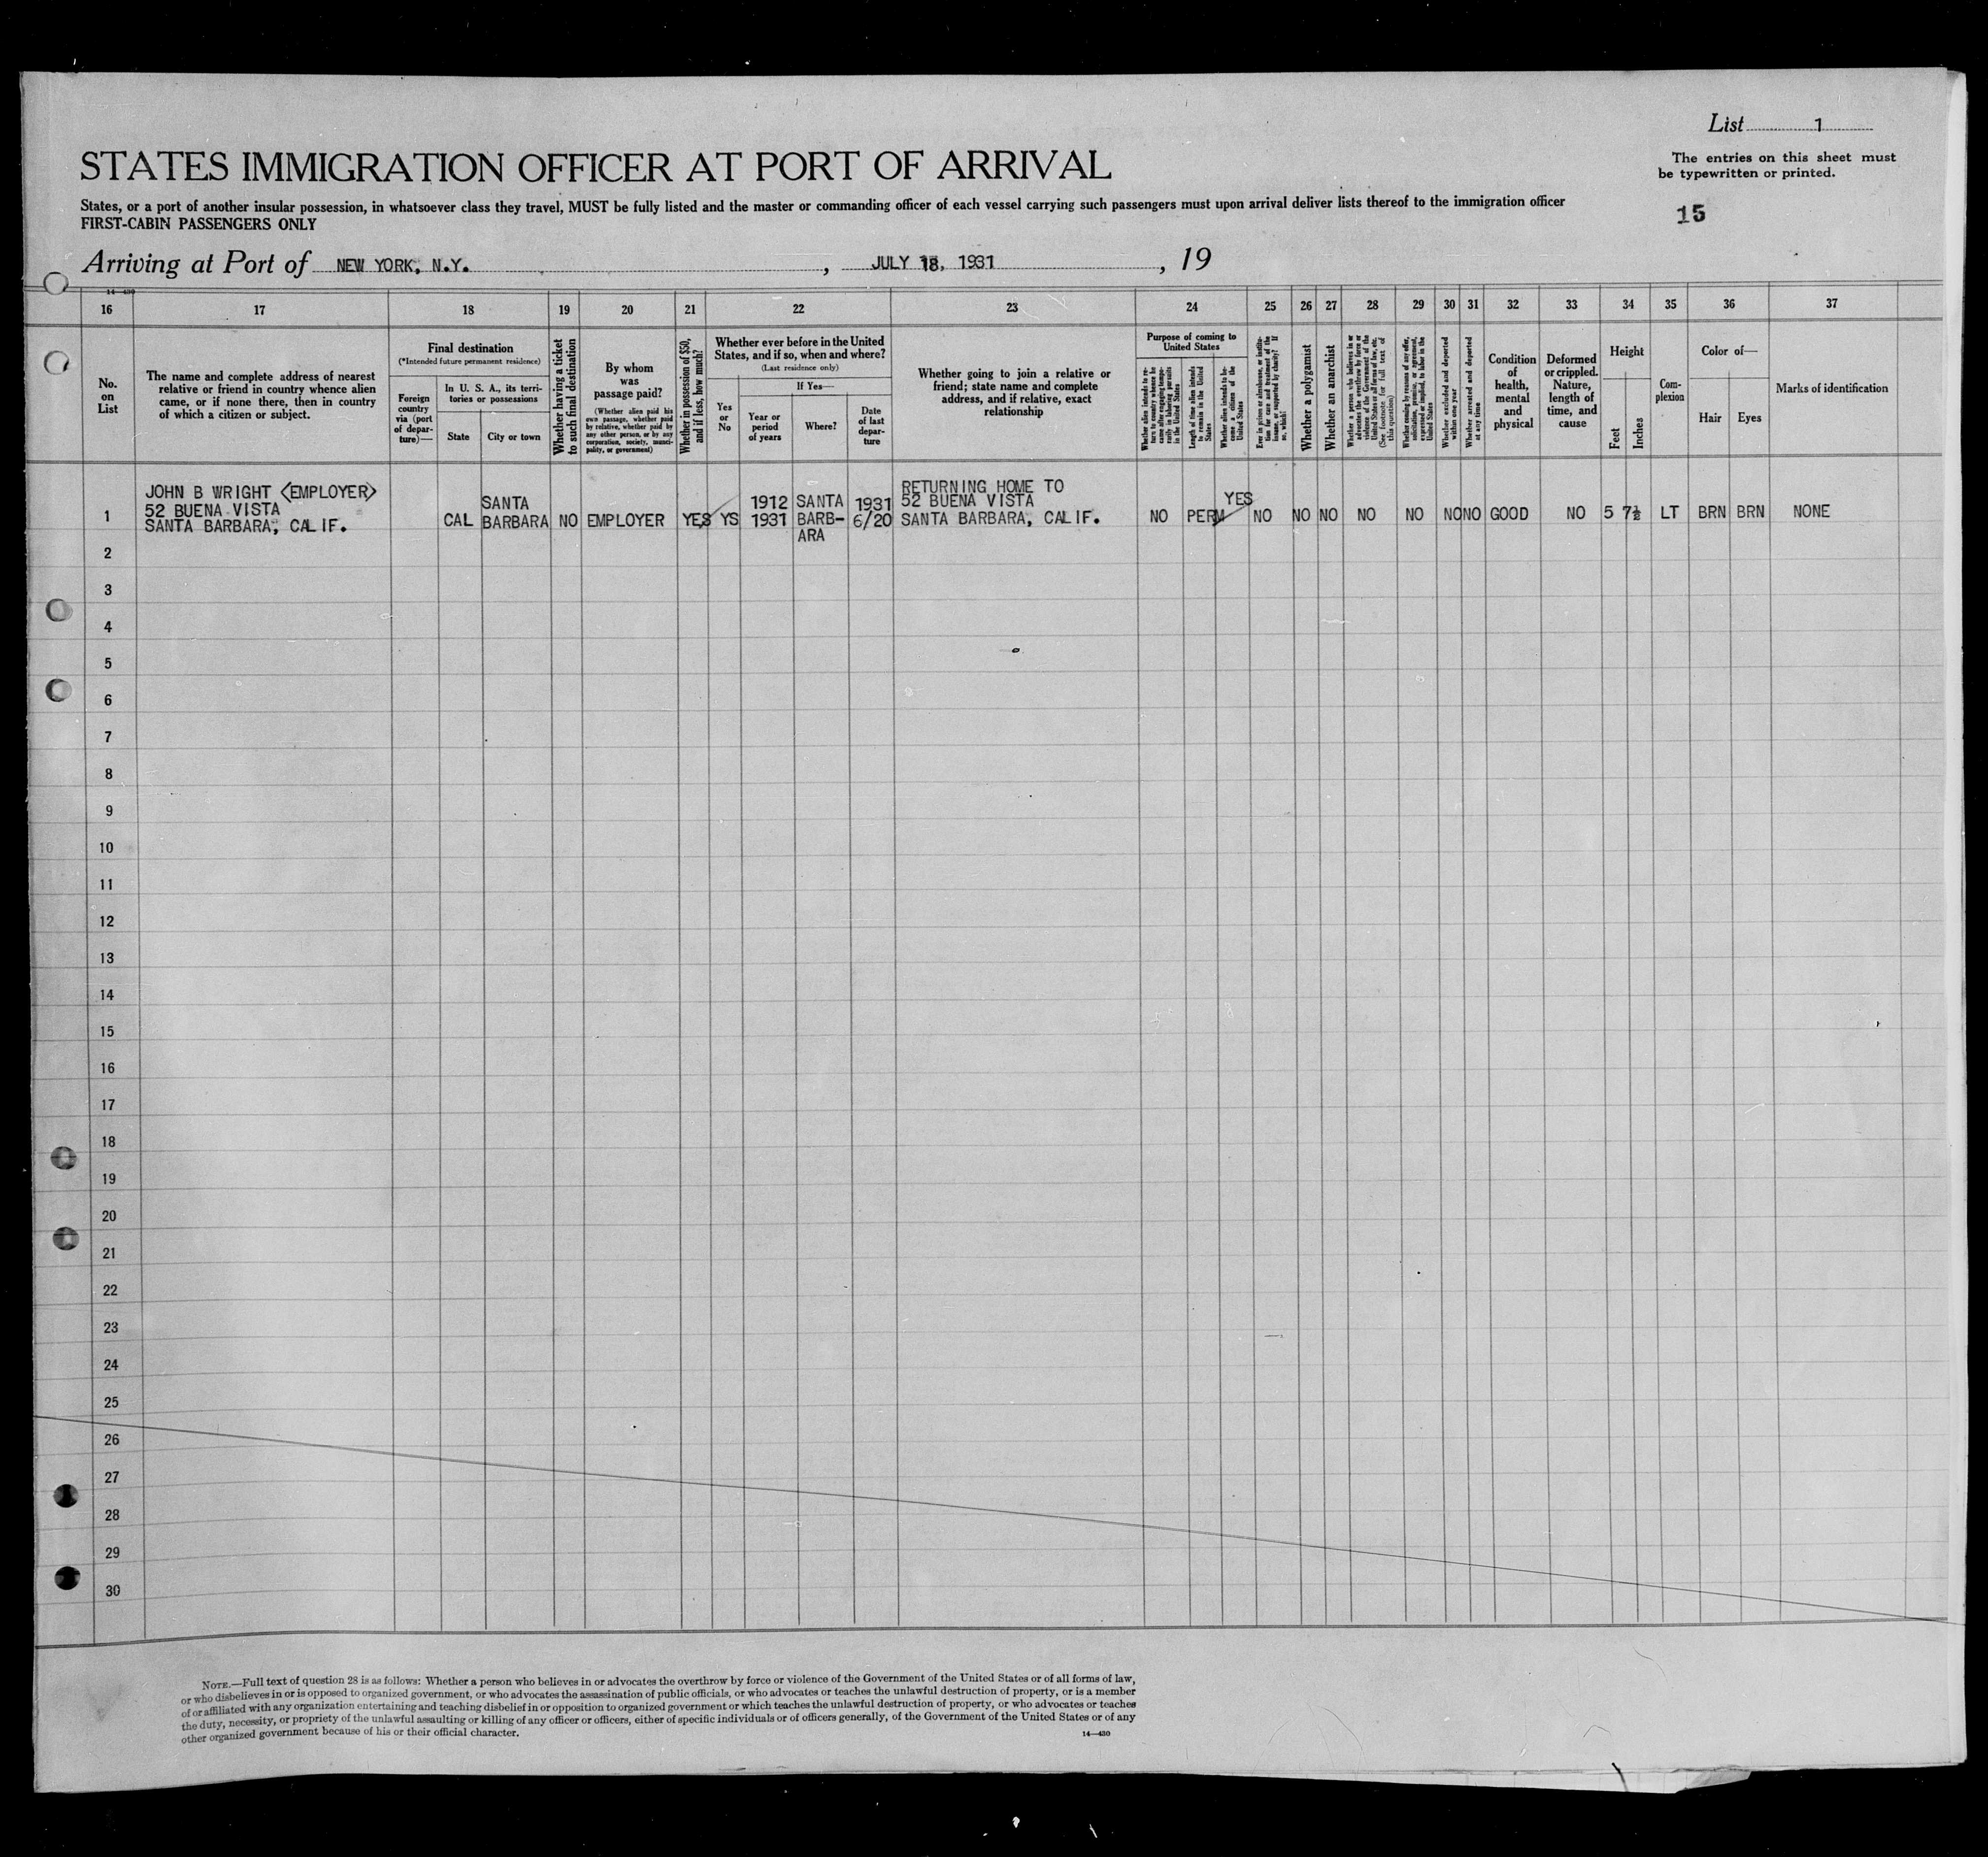 List 1
The entries on this sheet must
be typewritten or printed.
15
STATES IMMIGRATION OFFICER AT PORT OF ARRIVAL
States, or a port of another insular possession, in whatsoever class they travel, MUST be fully listed and the master or commanding officer of each vessel carrying such passengers must upon arrival deliver lists thereof to the immigration officer
FIRST-CABIN PASSENGERS ONLY
Arriving at Port of NEW YORK, N.Y. , JULY 18, 1931 , 19
14—430
16 17 18 19 20 21 22 23 24 25 26 27 28 29 30 31 32 33 34 35 36 37
No.
on
List
The name and complete address of nearest
relative or friend in country whence alien
came, or if none there, then in country
of which a citizen or subject.
Final destination
(*Intended future permanent residence)
Foreign
country
via (port
of depar-
ture)—
In U. S. A., its terri-
tories or possessions
State
City or town
Whether having a ticket
to such final destination
By whom
was
passage paid?
(Whether alien paid his
own passage, whether paid
by relative, whether paid by
any other person, or by any
corporation, society, munici-
pality, or government)
Whether in possession of $50,
and if less, how much?
Whether ever before in the United
States, and if so, when and where?
(Last residence only)
Yes
or
No
If Yes—
Year or
period
of years
Where?
Date
of last
depar-
ture
Whether going to join a relative or
friend; state name and complete
address, and if relative, exact
relationship
Purpose of coming to
United States
Whether alien intends to re-
turn to country whence he
came after engaging tempo-
rarily in laboring pursuits
in the United States
Length of time alien intends
to remain in the United
States
Whether alien intends to be-
come a citizen of the
United States
Ever in prison or almshouse, or institu-
tion for care and treatment of the
insane, or supported by charity? If
so, which?
Whether a polygamist
Whether an anarchist
Whether a person who believes in or
advocates the overthrow by force or
violence of the Government of the
United States or all forms of law, etc.
(See footnote for full text of
this question)
Whether coming by reasons of any offer,
solicitation, promise, or agreement,
expressed or implied, to labor in the
United States
Whether excluded and deported
within one year
Whether arrested and deported
at any time
Condition
of
health,
mental
and
physical
Deformed
or crippled.
Nature,
length of
time, and
cause
Height
Feet
Inches
Com-
plexion
Color of—
Hair
Eyes
Marks of identification
JOHN B WRIGHT <EMPLOYER>
52 BUENA VISTA
SANTA BARBARA, CALIF.
1
CAL
SANTA
BARBARA
NO
EMPLOYER
YES
YS
1912
1931
SANTA
BARB-
ARA
1931
6/20
RETURNING HOME TO
52 BUENA VISTA
SANTA BARBARA, CALIF.
NO
PERM
YES
NO
NO
NO
NO
NO
NO
NO
GOOD
NO
5 7½
LT
BRN
BRN
NONE
2
3
4
5
6
7
8
9
10
11
12
13
14
15
16
17
18
19
20
21
22
23
24
25
26
27
28
29
30
NOTE.—Full text of question 28 is as follows: Whether a person who believes in or advocates the overthrow by force or violence of the Government of the United States or of all forms of law,
or who disbelieves in or is opposed to organized government, or who advocates the assassination of public officials, or who advocates or teaches the unlawful destruction of property, or is a member
of or affiliated with any organization entertaining and teaching disbelief in or opposition to organized government or which teaches the unlawful destruction of property, or who advocates or teaches
the duty, necessity, or propriety of the unlawful assaulting or killing of any officer or officers, either of specific individuals or of officers generally, of the Government of the United States or of any
other organized government because of his or their official character.
14—430